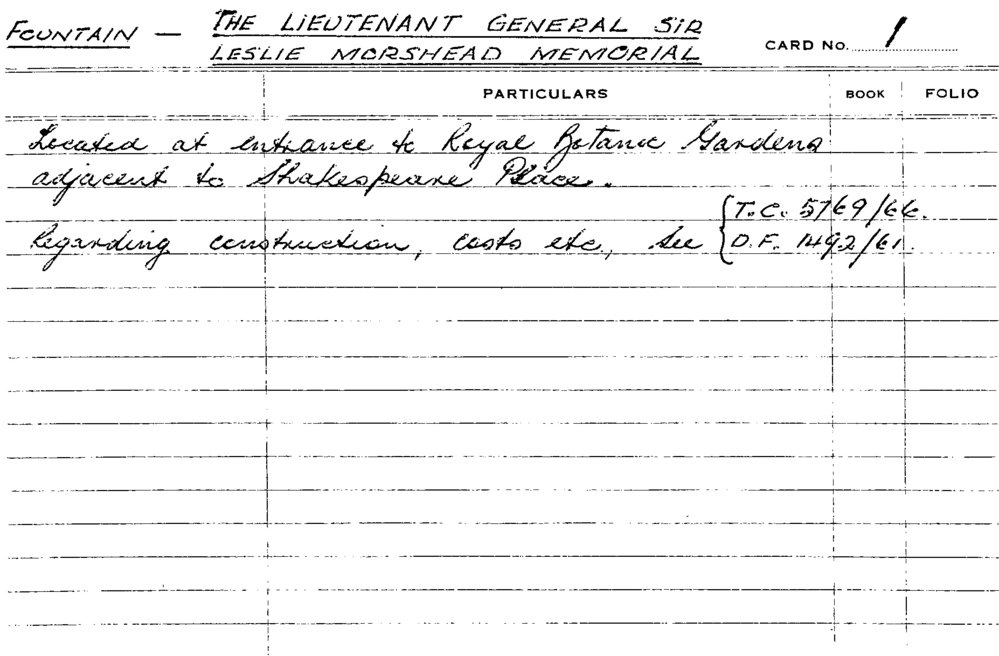 FOUNTAIN — THE LIEUTENANT GENERAL SIR
LESLIE MORSHEAD MEMORIAL
CARD No. 1
PARTICULARS BOOK FOLIO
Located at entrance to Royal Botanic Gardens
adjacent to Shakespeare Place.
T.C. 5769/66.
Regarding construction, costs etc., see D.F. 1492/61.